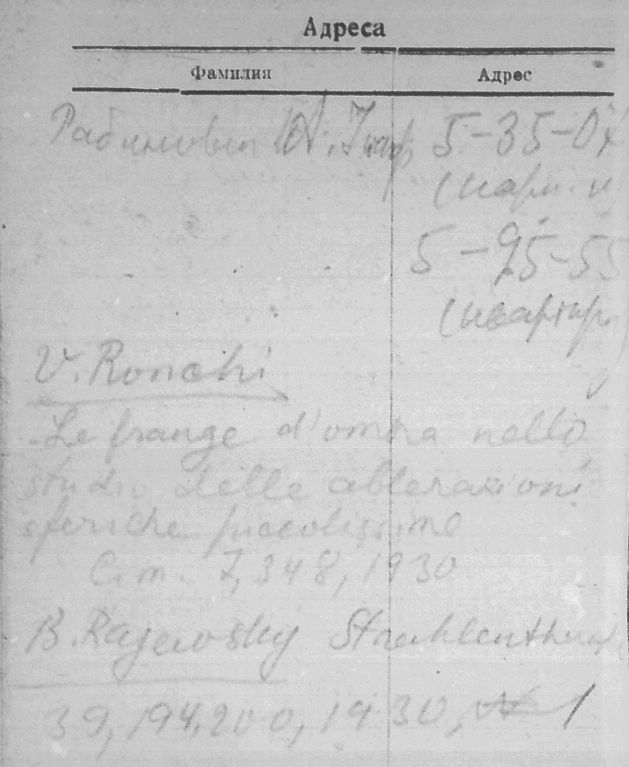 Адреса
Фамилия Адрес
Рабинович 5-35-0
5-95-55
V. Ronchi
Le frange d'ombra nello
studio delle abberazioni
sferiche piccolissime
Cim. 7, 348, 1930
B. Rajewsky Strahlenther
39, 194, 200, 1930, 1